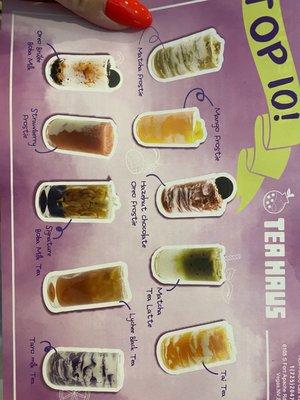 TOP 10!
Matcha Frostie
Oreo Brûlée
Boba Milk
Mango Frostie
Strawberry
Frostie
Hazelnut chocolate
Oreo Frostie
Signature
Boba Milk Tea
Matcha
Tea Latte
Lychee Black Tea
Tai Tea
Taro milk Tea
TEAHAUS
6105 S Fort Apache Rd